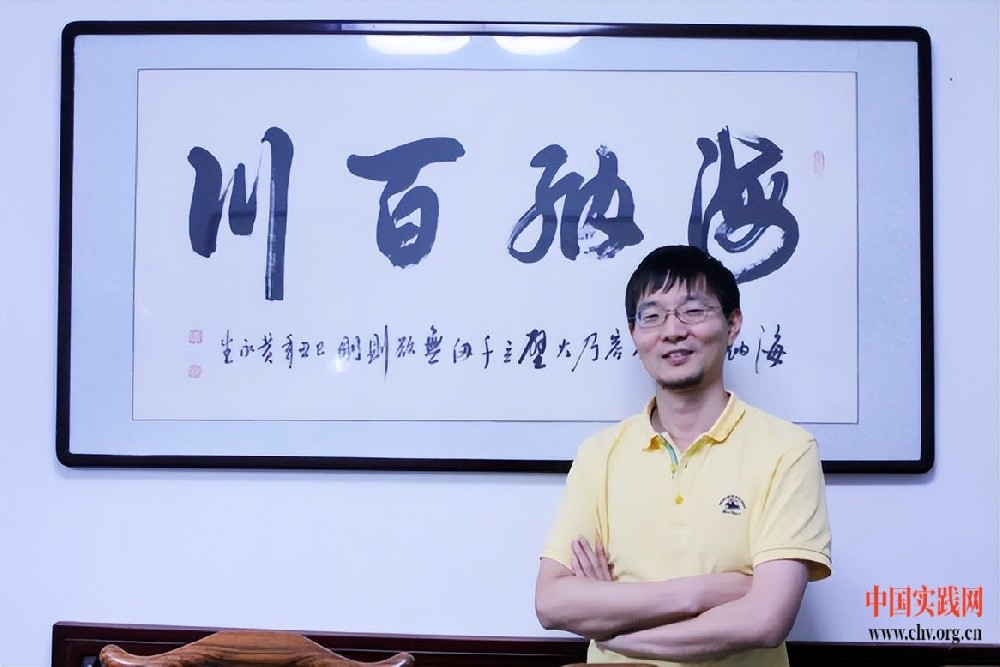 海纳百川
海纳容乃大壁立千仞無欲则刚己丑年黄永生
中国实践网
www.chv.org.cn